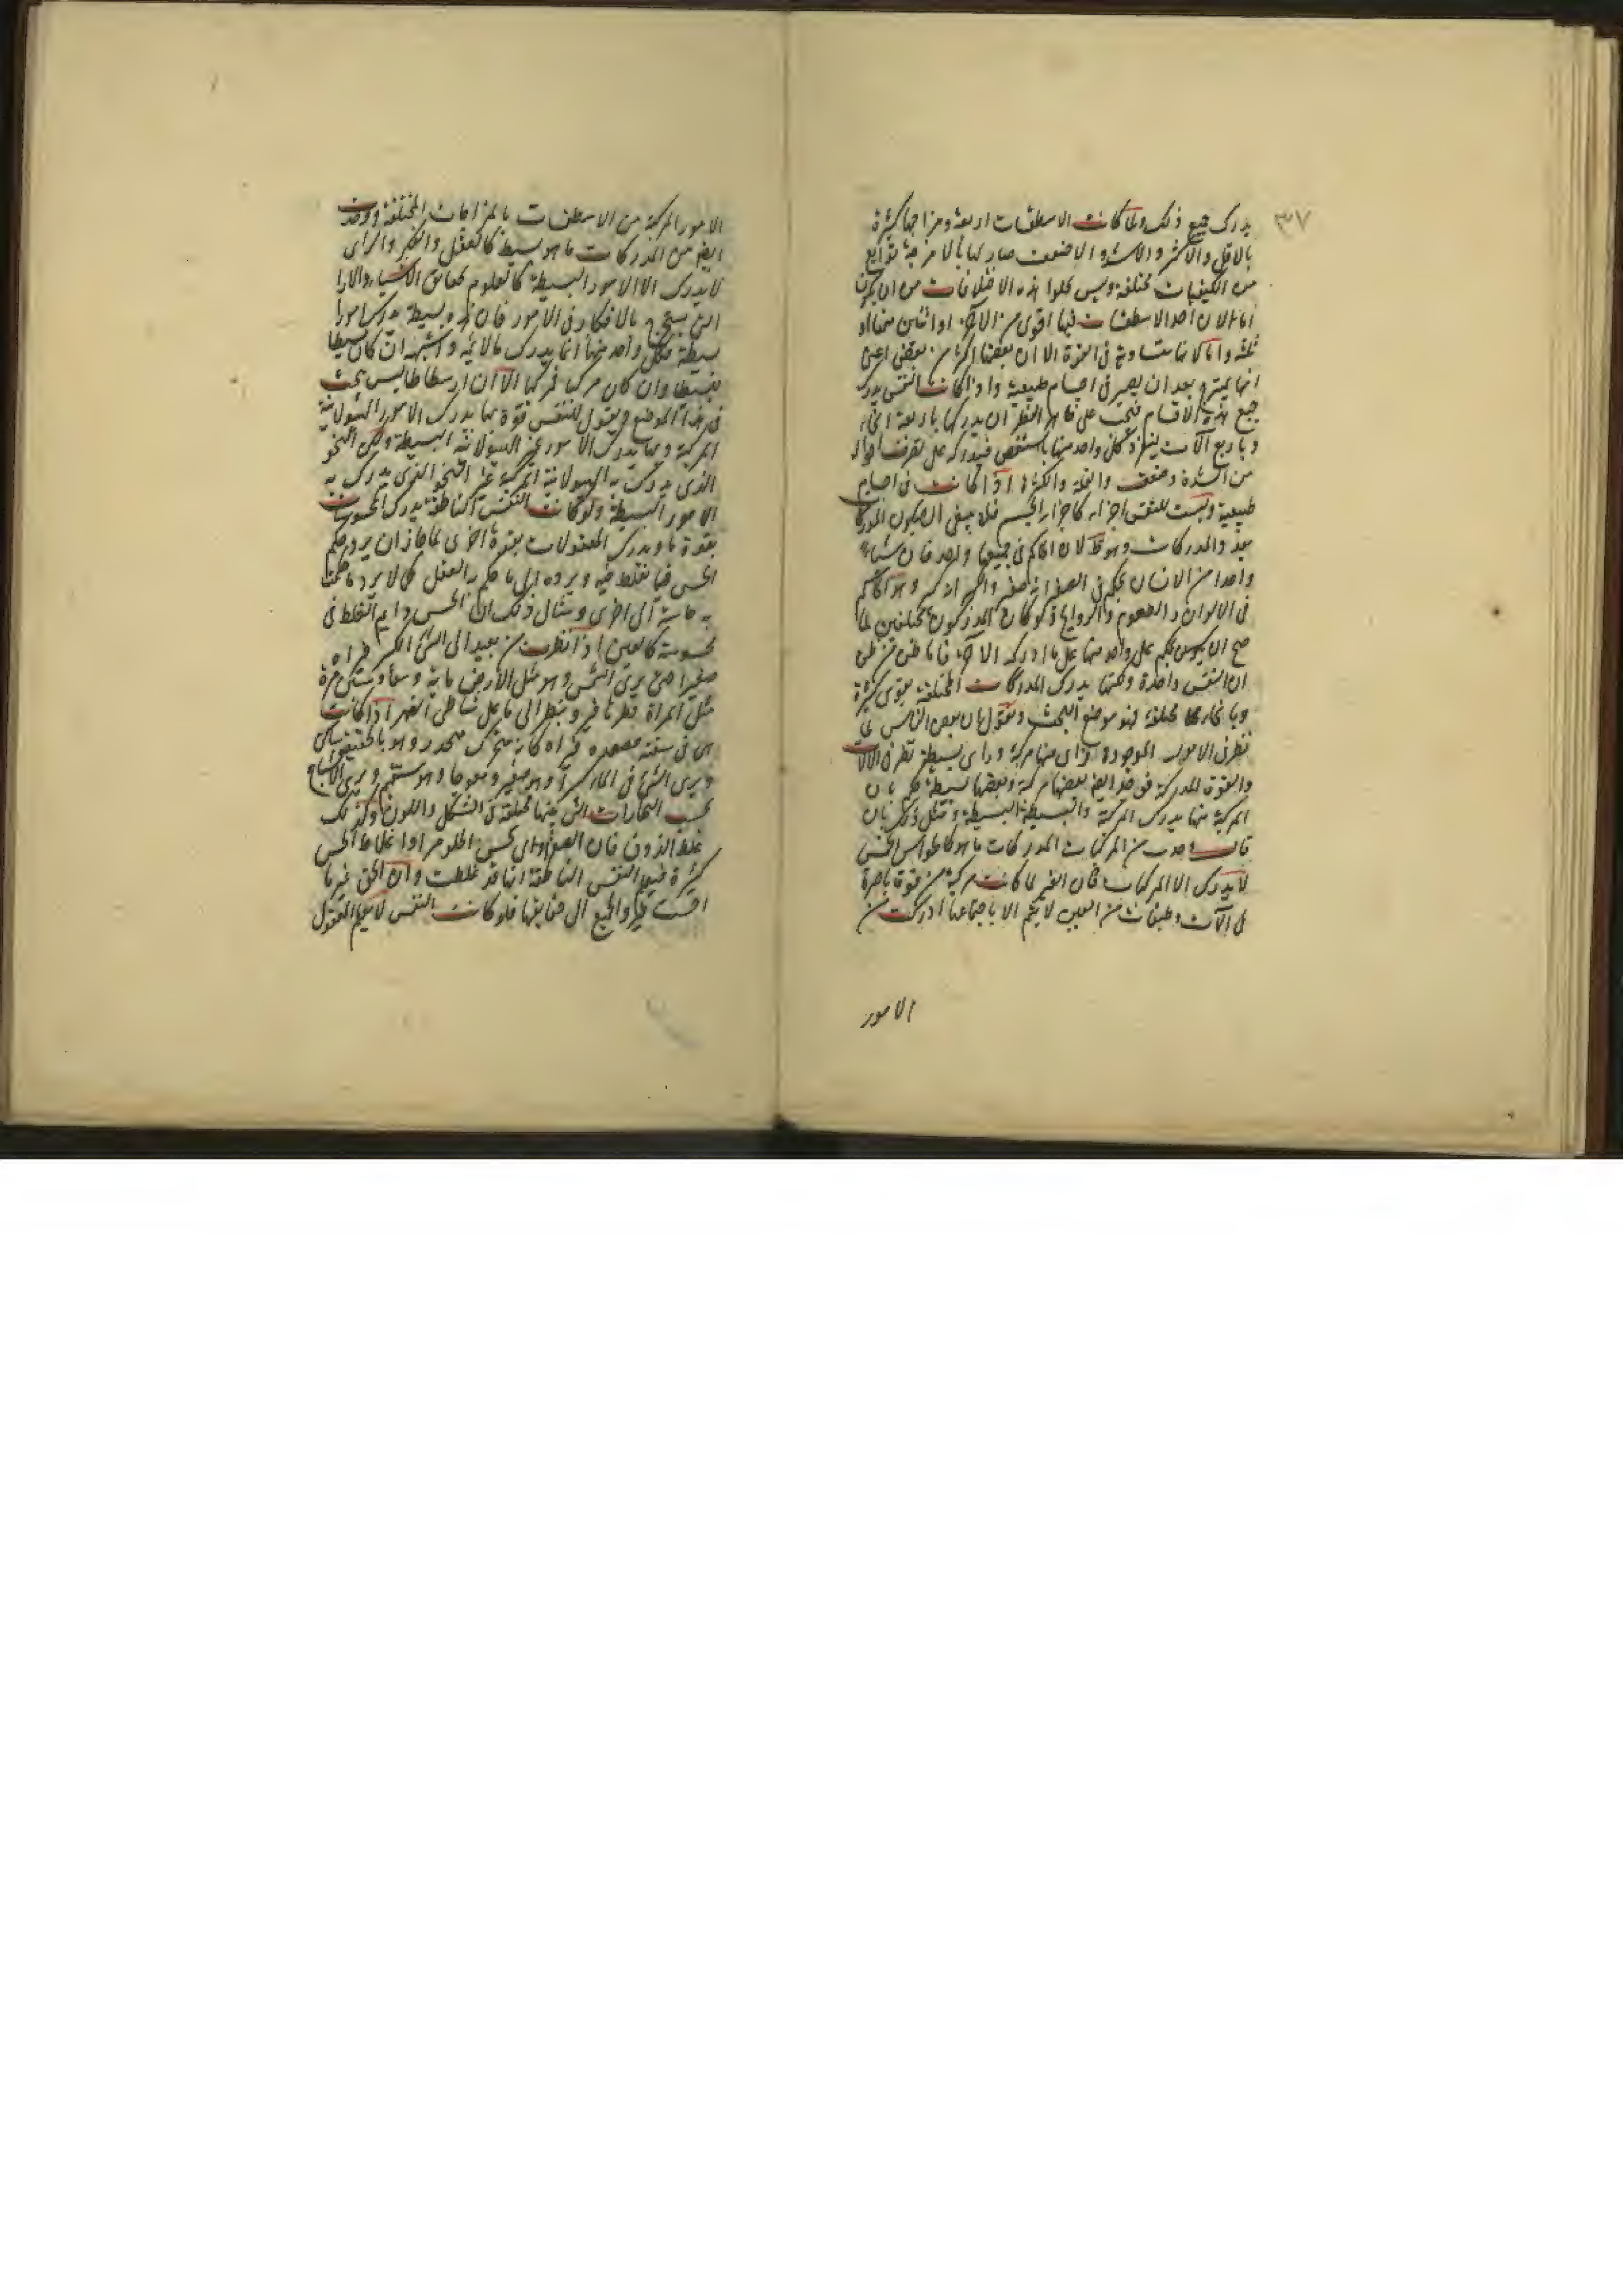 ٣٧
يدرك جميع ذلك ولما كانت الاسطقسات اربعة ومزاجها كثيرة
بالاقل والاكثر والاشد والاضعف صار لها بالامزجة توابع
من الكيفيات مختلفة وليس تخلوا هذه الاختلافات من ان يكون
اما لان احد الاسطقسات فيها اقوى من الآخر او اثنين منها او
ثلثة واما لانها متساوية فى القوة الا ان بعضها اكثر من بعض اعنى
انها بعد ان يصير فى اجسام طبيعية واذا كانت النفس يدرك
جميع هذه الاقسام فيجب على ظاهر النظر ان يدركها باربعة انحاء
وباربع آلات كل واحد منها باسطقس فيدركه على تصرف احواله
من الشدة وضعف والقلة والكثرة اذا كانت فى اجسام
طبيعية وليست للنفس اجزاء كاجزاء الجسم فلا ينبغى ان يكون المدرك
بعدد المدركات وهو لان الحاكم فى جميعها واحد فان شيئا
واحدا من الانسان يحكم فى الصغر انه صغر والكبر انه كبر وهو الحاكم
فى الالوان والطعوم والروايح فلو كان المدركون مختلفين لما
صح ان يحكم على واحد منها على ما ادركه الآخر فاما ظن من ظن
ان النفس واحدة ولكنها يدرك المدركات المختلفة بقوى كثيرة
وبانحاء مختلفة فهو موضع البحث ونقول ان بعض الناس لما
نظر فى الامور الموجودة فراى منها مركبة وراى بسيطة نظر فى الآلات
والقوى المدركة فوجد ايضا بعضها مركبة وبعضها بسيطة فحكم بان
المركبة منها يدرك المركبة والبسيطة البسيطة ومثل ذلك بان
قال وجدت من المركبات المدركات ما هو كالحواس الخمس
لا يدرك الا المركبات فان العين لما كانت مركبة من قوة باصرة
فى آلات وطبقات من العين لا يتم الا باجتماعها ادركت من
الامور
الامور المركبة من الاسطقسات بالمزاجات المختلفة ووجدت
ايضا من المدركات ما هو بسيط كالعقل والفكر والراى
لا يدرك الا الامور البسيطة كالعلوم بحقايق الاشياء والآراء
التى يستخرج بالافكار فى الامور فان هذه بسيطة يدرك امورا
بسيطة فكل واحد منها انما يدرك ما لايمه واشبهه ان كان بسيطا
فبسيطا وان كان مركبا فمركبا الا ان ارسطاطاليس بحث
فى هذا الموضع ويقول للنفس قوة بها يدرك الامور الهيولانية
المركبة وبها يدرك الامور غير الهيولانية البسيطة ولكن النحو
الذى يدرك به الهيولانية المركبة غير النحو الذى يدرك به
الامور البسيطة ولو كانت النفس الناطقة يدرك المحسوسات
بقوة ما ويدرك المعقولات بقوة اخرى لما جاز ان يرد حكم
الحس فيما تغلط فيه ويرده الى ما حكم به العقل كما لا يرد ما حكمت
به حاسة الى اخرى ومثال ذلك ان الحس دايم الغلط فى
محسوسه كالعين اذا نظرت من بعيد الى الشئ الكبير فيراه
صغيرا حتى يرى الشمس وهو مثل الارض ماية ونيفا وستين مرة
مثل المرآة وينظر الى ما على شاطى النهر اذا كانت
هى فى سفينة مصعدة فيراه كانه متحرك منحدر وهو بالحقيقة ساكن
ويرى الشئ فى الماء كبيرا وهو صغير ومعوجا وهو مستقيم ويرى الاشباح
بحسب البخارات التى بينها مختلفة فى الشكل واللون وكذلك
غلط الذوق فان الصفراوى يحس الحلو مرا واغلاط الحس
كثيرة فتعلم النفس الناطقة انها قد غلطت وان الحق غير ما
فيرد الجميع الى حقايقها فلو كانت النفس لا تعلم المعقول